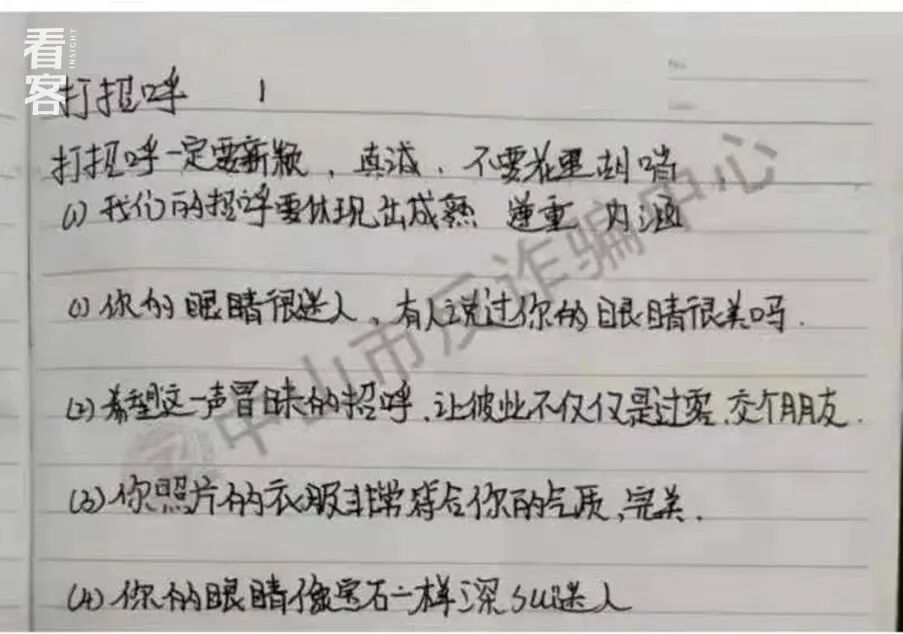 看客
INSIGHT
打招呼 1
打招呼一定要新颖，真诚，不要花里胡哨
(1) 我们的招呼要体现出成熟 尊重 内涵
(1) 你的眼睛很迷人，有人说过你的眼睛很美吗.
(2) 希望这一声冒昧的招呼，让彼此不仅仅是过客，交个朋友.
(3) 你照片的衣服非常符合你的气质，完美.
(4) 你的眼睛像宝石一样深sui迷人
中山市反诈骗中心